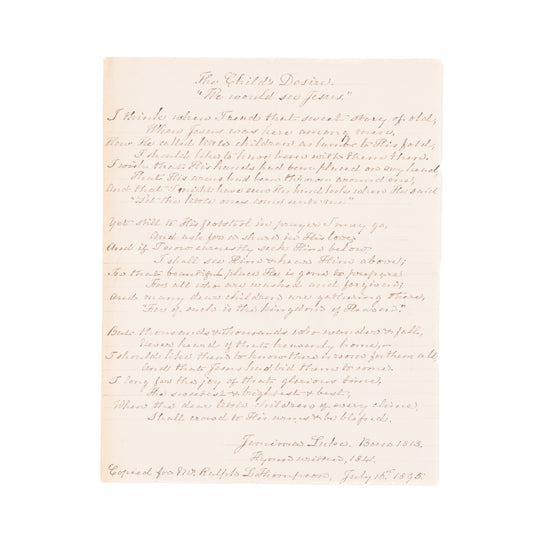 The Child's Desire.
"We would see Jesus."
I think when I read that sweet story of old,
When Jesus was here among men,
How He called little children as lambs to His fold;
I should like to have been with them then.
I wish that His hands had been placed on my head,
That His arms had been thrown around me,
And that I might have seen His kind look when He said
"Let the little ones come unto me"
Yet still to His footstool in prayer I may go,
And ask for a share in His love,
And if I now earnestly seek Him below
I shall see Him & hear Him above;
In that beautiful place He is gone to prepare
For all who are washed and forgiven;
And many dear children are gathering there,
"For of such is the kingdom of Heaven."
But thousands & thousands who wander & fall,
Never heard of that heavenly home,
I should like them to know there is room for them all,
And that Jesus had bid them to come.
I long for the joy of that glorious time,
The sweetest & brightest & best,
When the dear little children of every clime,
Shall crowd to His arms & be blessed.
Jemima Luke. Born 1813.
Hymn written, 1841.
Copied for Mr. Ralph Thompson, July 15th 1895.